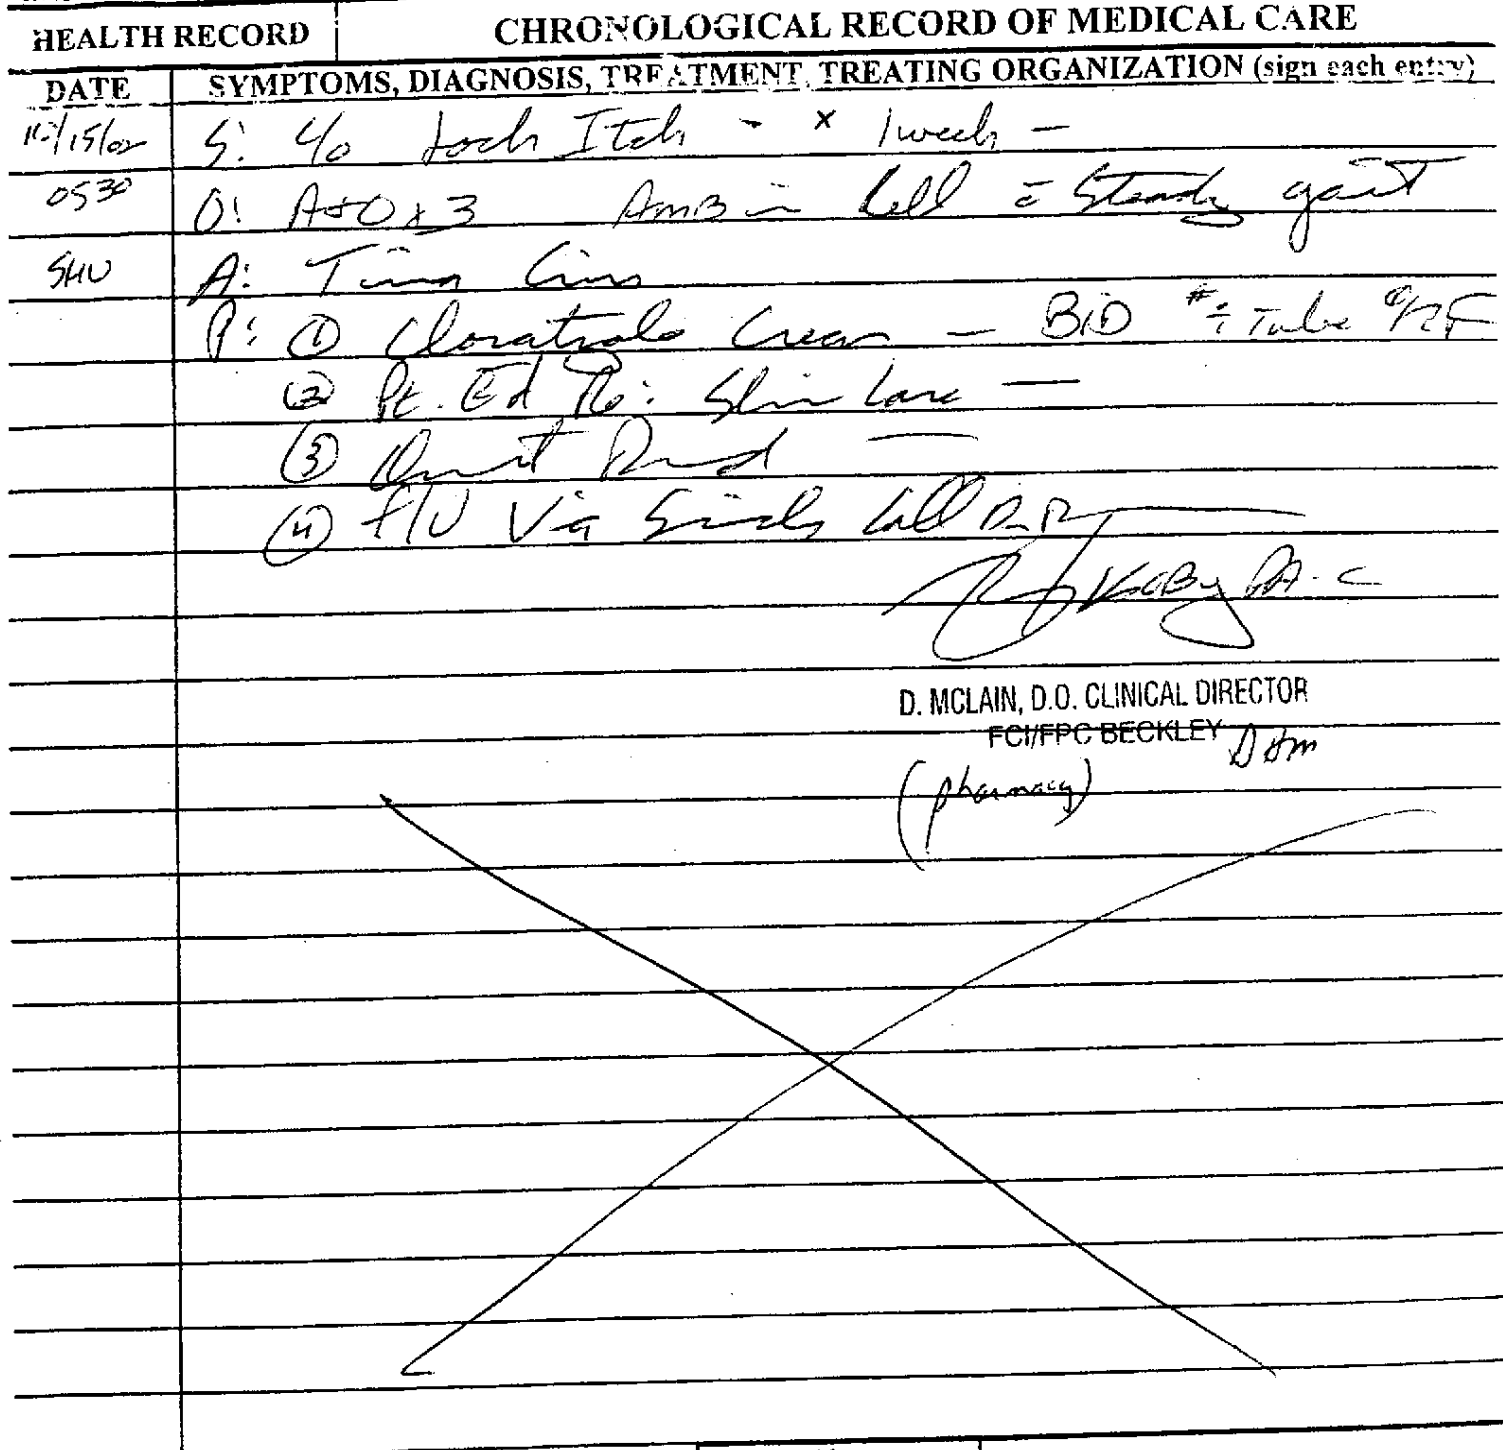 HEALTH RECORD CHRONOLOGICAL RECORD OF MEDICAL CARE
DATE SYMPTOMS, DIAGNOSIS, TREATMENT, TREATING ORGANIZATION (sign each entry)
S: c/o Jock Itch - x 1 week -
0530 O: A+O x 3 AmB in Cell c Steady gait
SHU A:
P: ① Cream - BID # i Tube
② Pt. Ed Re: Skin Care —
③
④ F/U Via Sick Call PRN
PA-C
D. MCLAIN, D.O. CLINICAL DIRECTOR
FCI/FPC BECKLEY
(pharmacy)